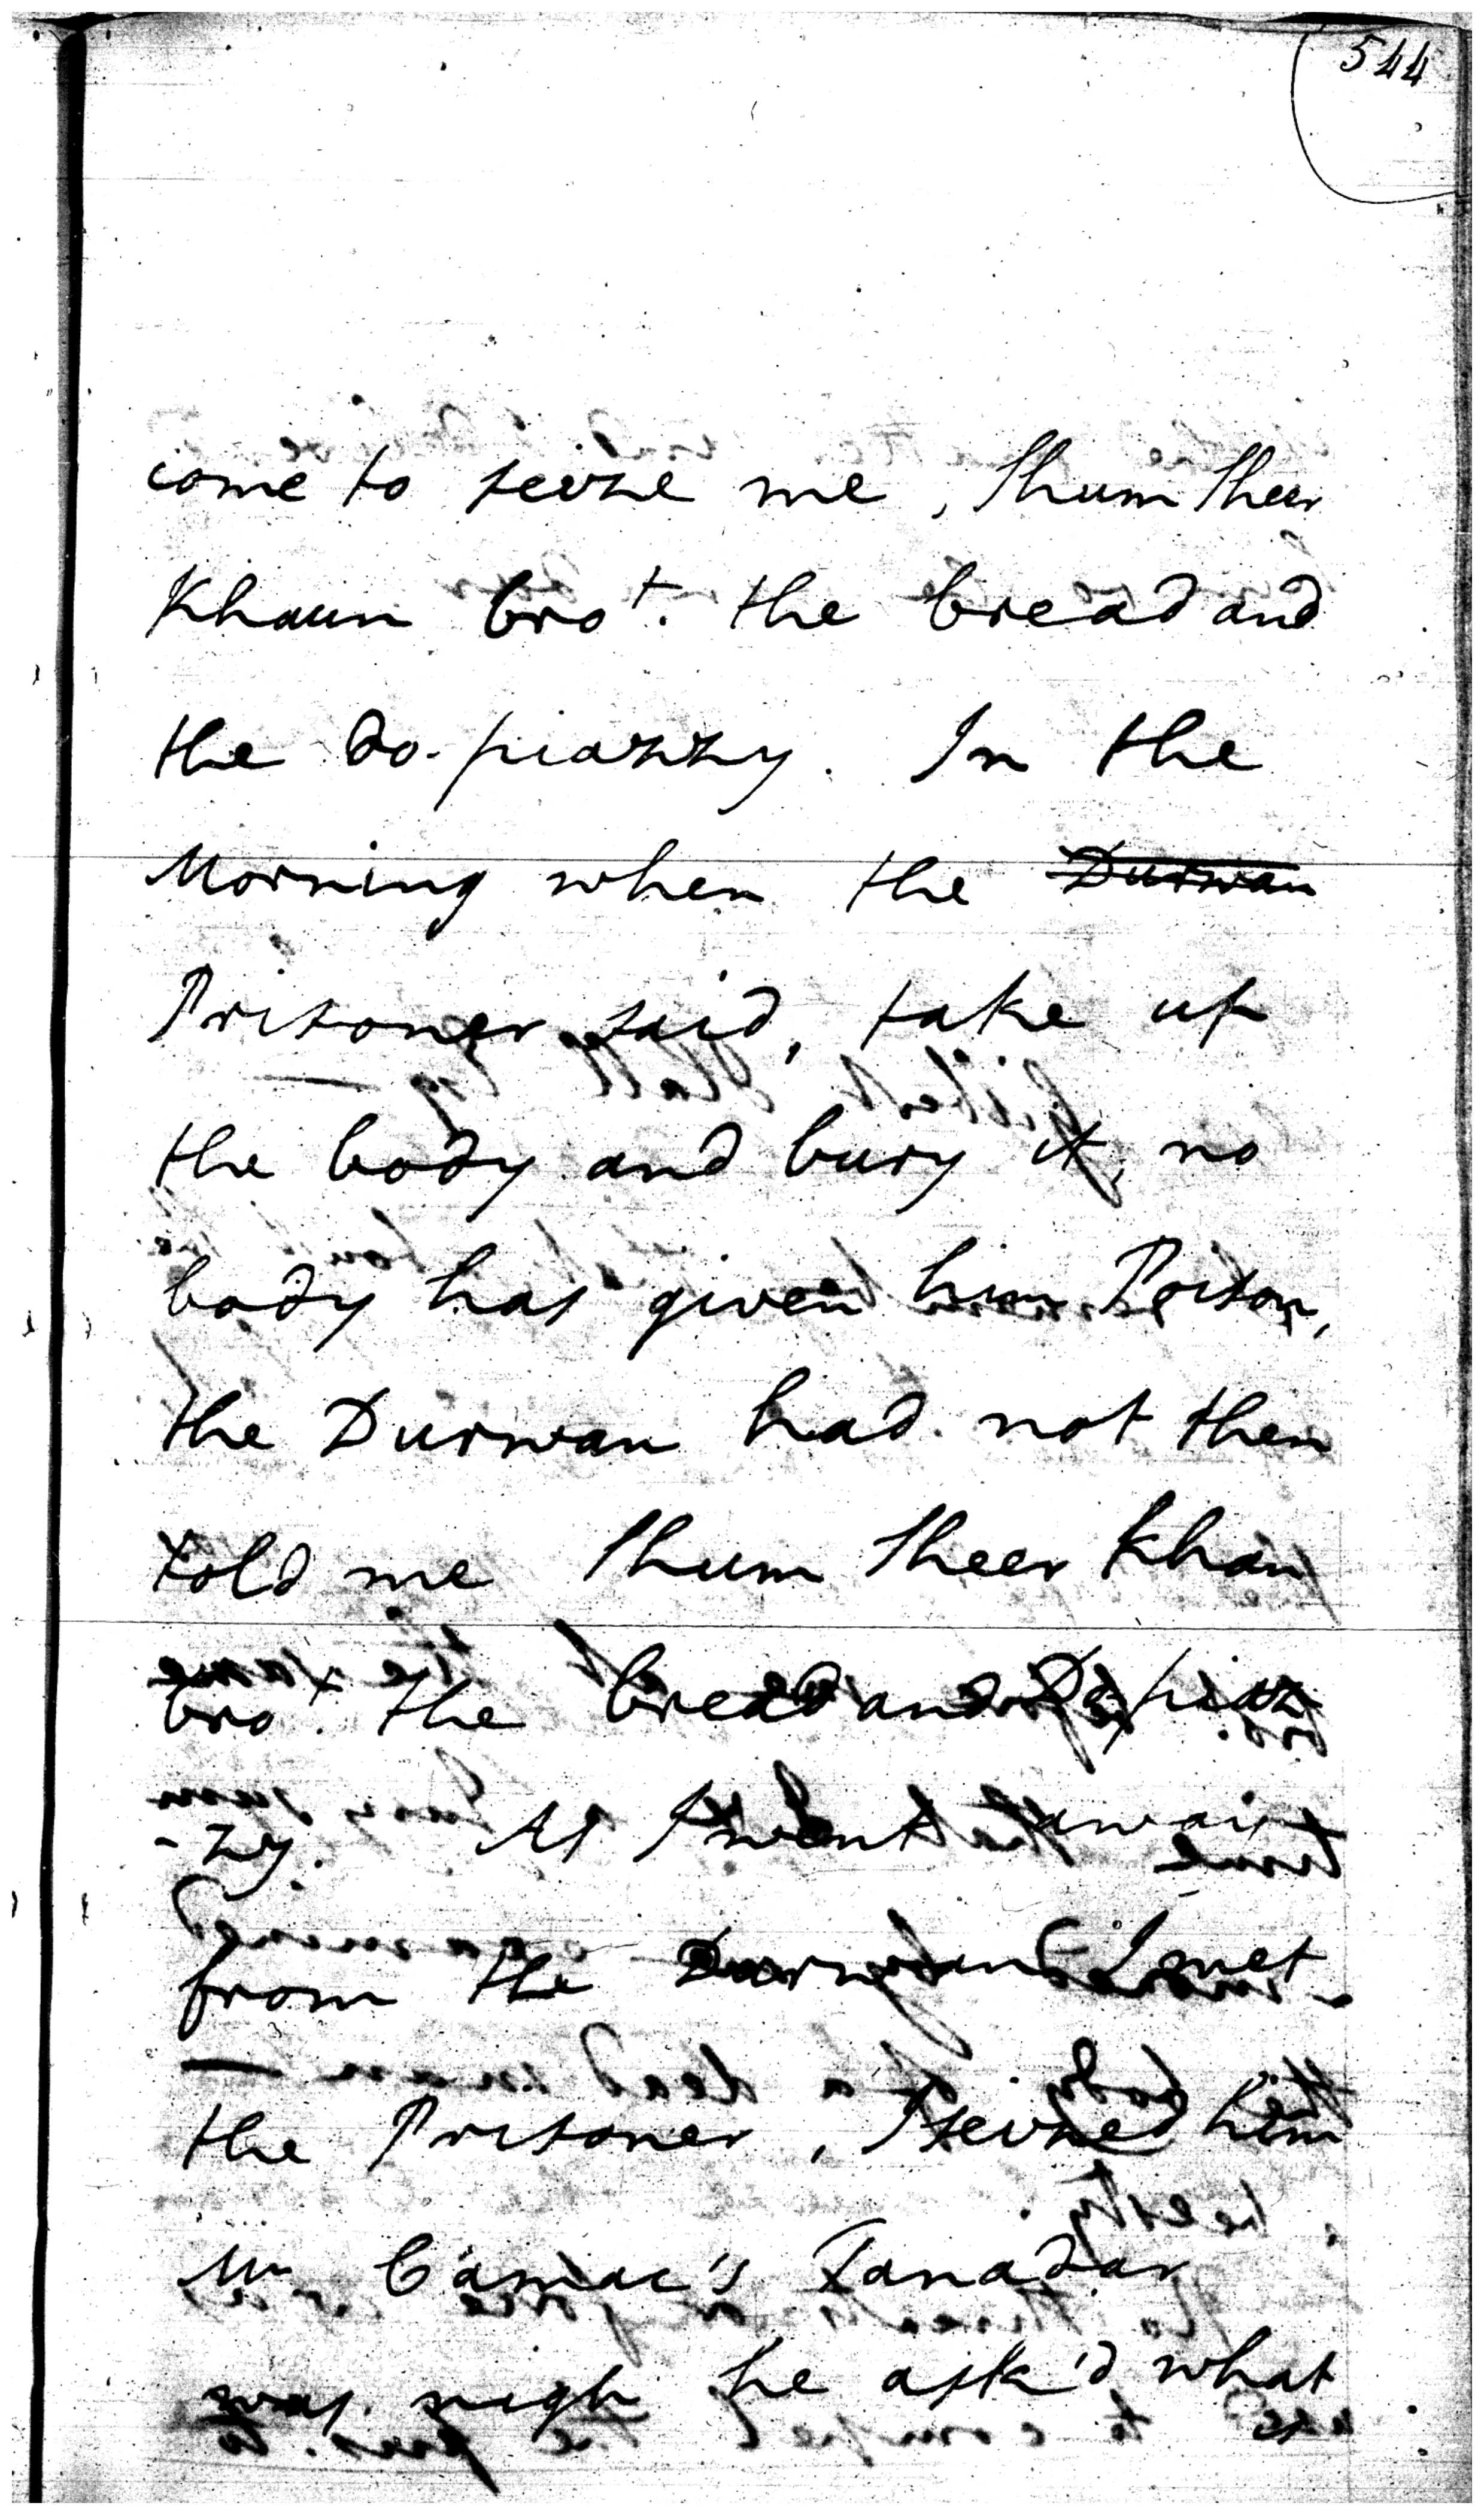 544
come to seize me, Shum Sheer
Khaun bro<sup>t</sup>. the bread and
the do-piazzy. In the
Morning when the <s>Durwan</s>
Prisoner said, take up
the body and bury it, no
body has given him Poison,
the Durwan had not then
told me Shum Sheer Khan
bro<sup>t</sup>. the bread and Do piaz
-zy. As I went away
from the Durwan I met
the Prisoner, I seized him
M<sup>r</sup> Camac's Janadar
was nigh he ask'd what